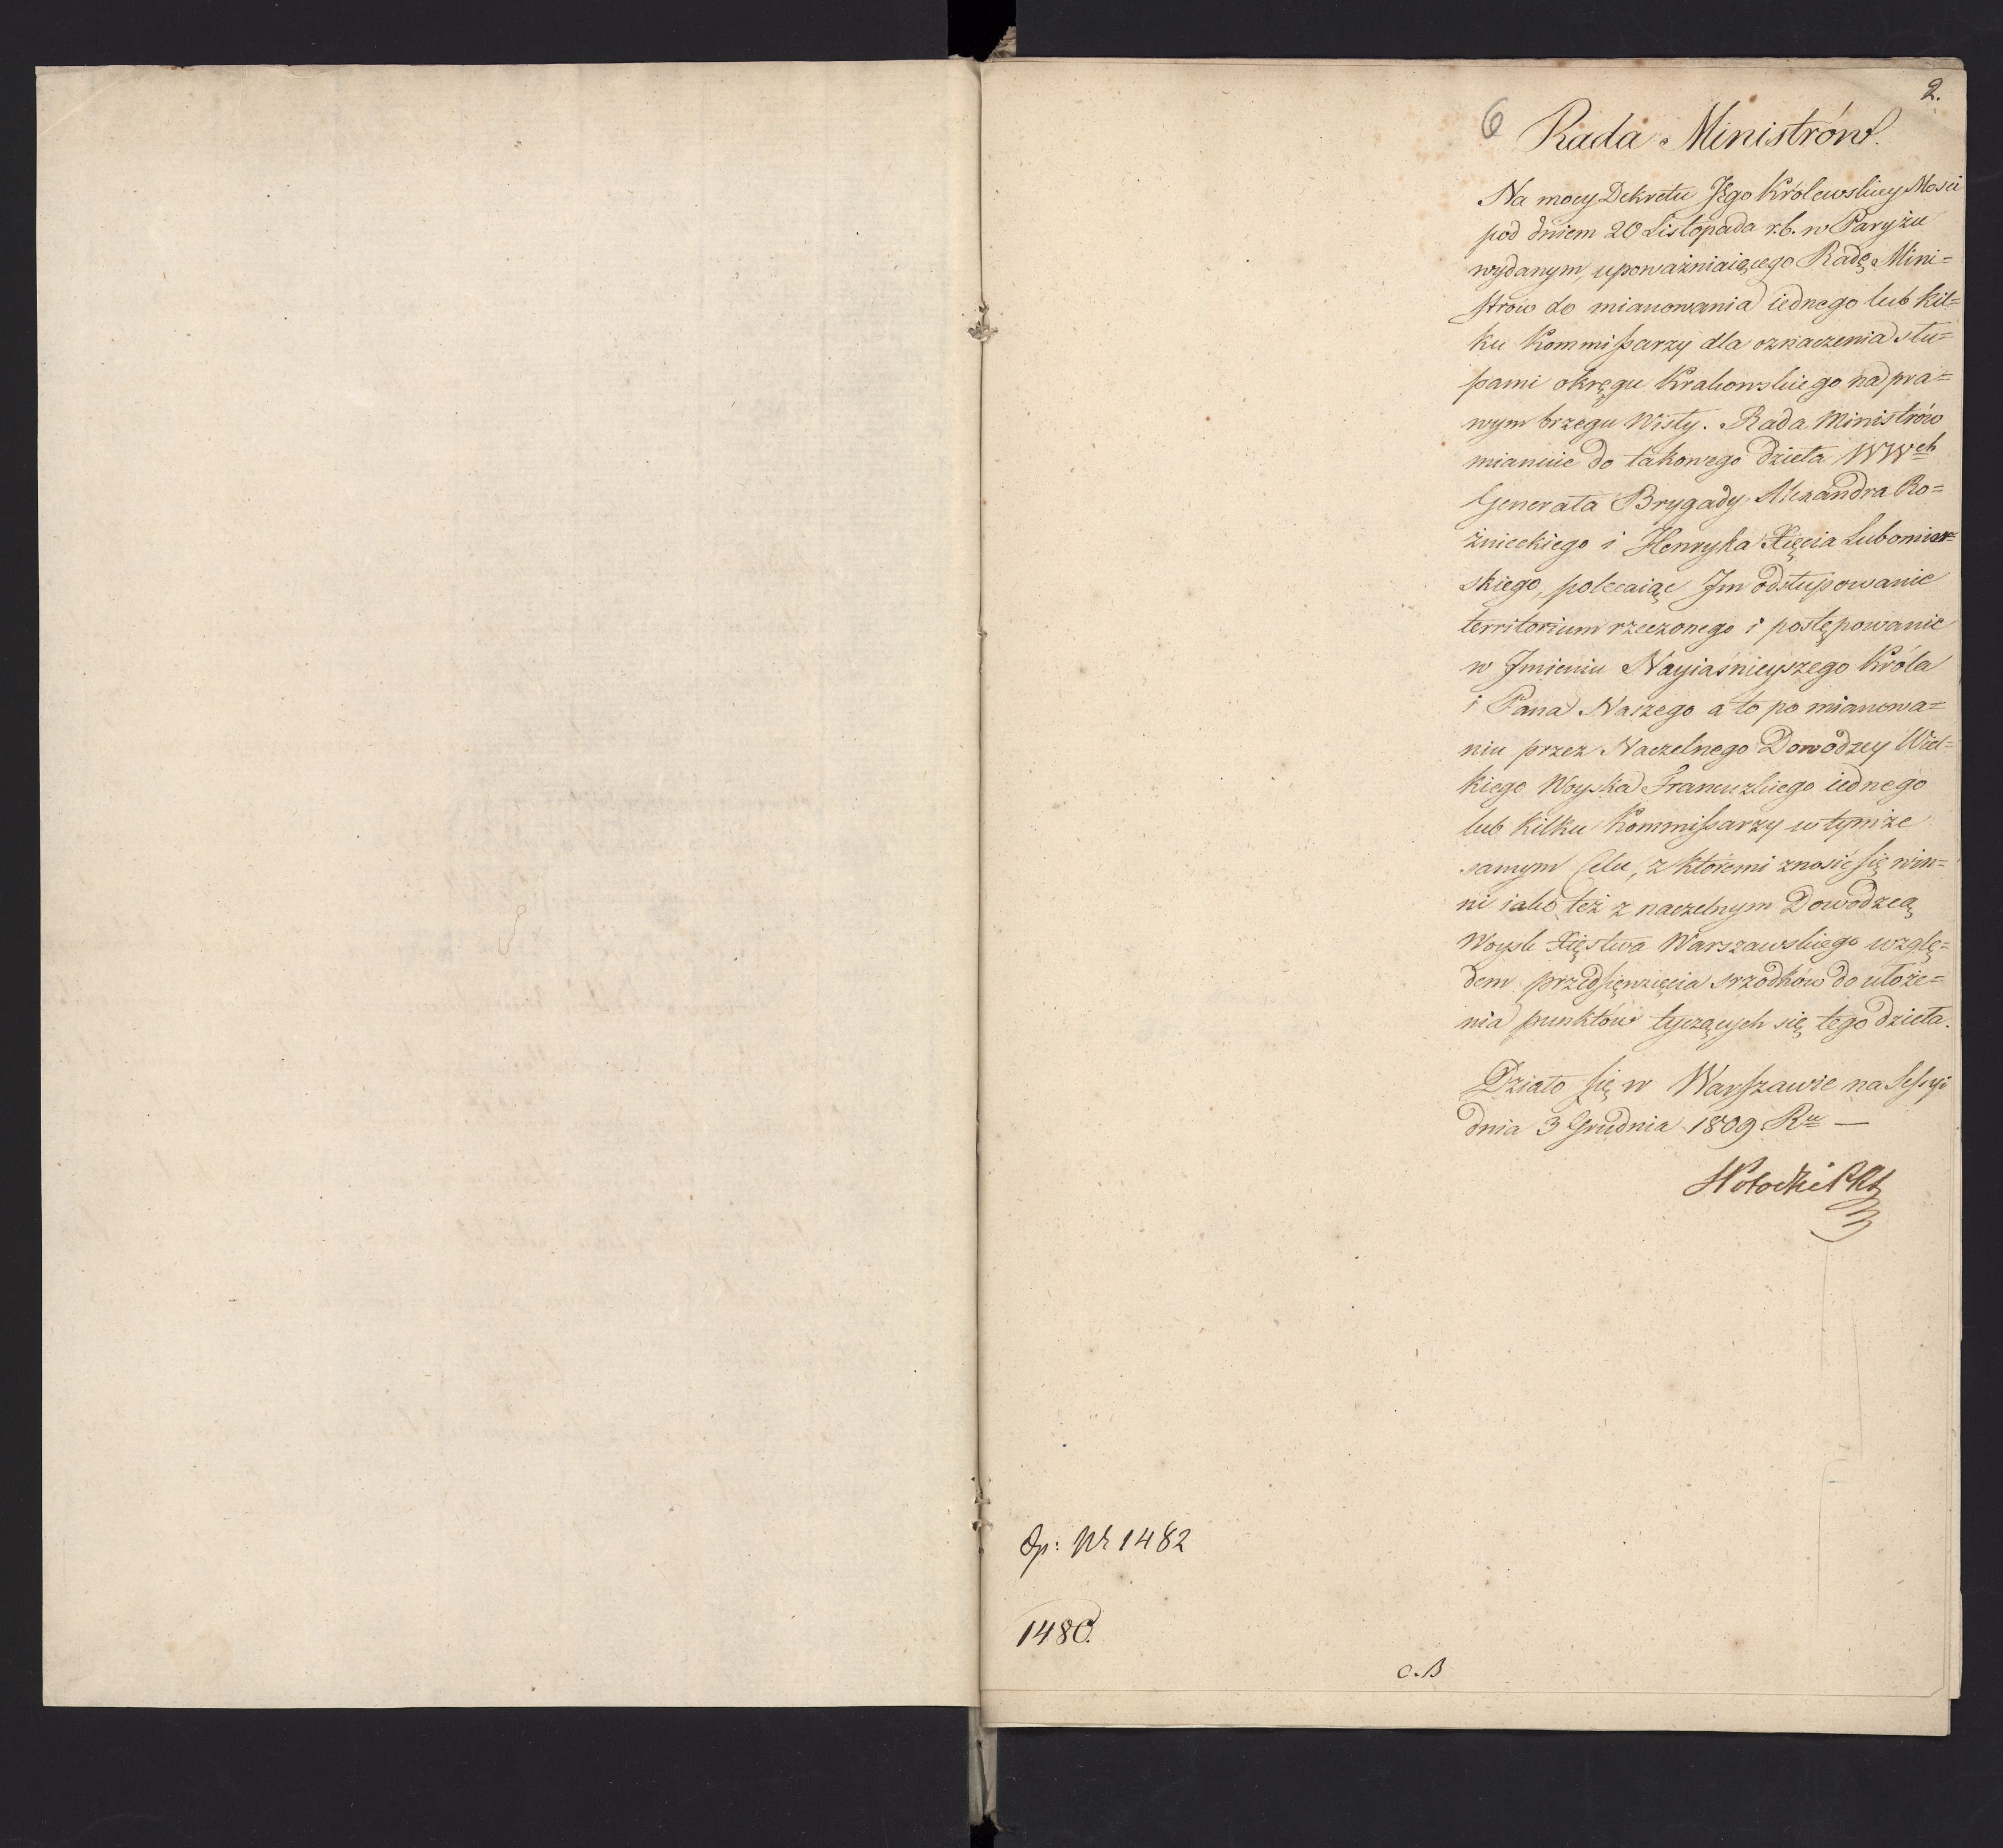 2.
6
Rada Ministrów.
Na mocy Dekretu Jego Królewskiey Mosci
pod dniem 20 Listopada r.b. w Paryżu
wydanym, upoważniaiącego Radę Mini=
strów do mianowania iednego lub kil=
ku Kommissarzy dla oznaczenia słu=
pami okręgu Krakowskiego na pra=
wym brzegu Wisły. Rada Ministrów
mianuie do takowego dzieła WWch
Generała Brygady Alexandra Ro=
żnieckiego i Henryka Xięcia Lubomir=
skiego, polecaiąc Im odsłupowanie
territorium rzeczonego i postępowanie
w Imieniu Nayiaśnieyszego Króla
i Pana Naszego a to po mianowa=
niu przez Naczelnego Dowodzcy Wiel=
kiego Woyska Francuzkiego iednego
lub kilku Kommissarzy w tymże
samym Celu, z któremi znosić się win=
ni iako też z naczelnym Dowodzcą
Woysk Xięstwa Warszawskiego wzglę=
dem przedsięwzięcia srzodków do ułoże=
nia punktów tyczących się tego dzieła.
Działo się w Warszawie na Sessyi
dnia 3 Grudnia 1809 Ru —
Potocki
Op: Nr 1482
1480.
C.B